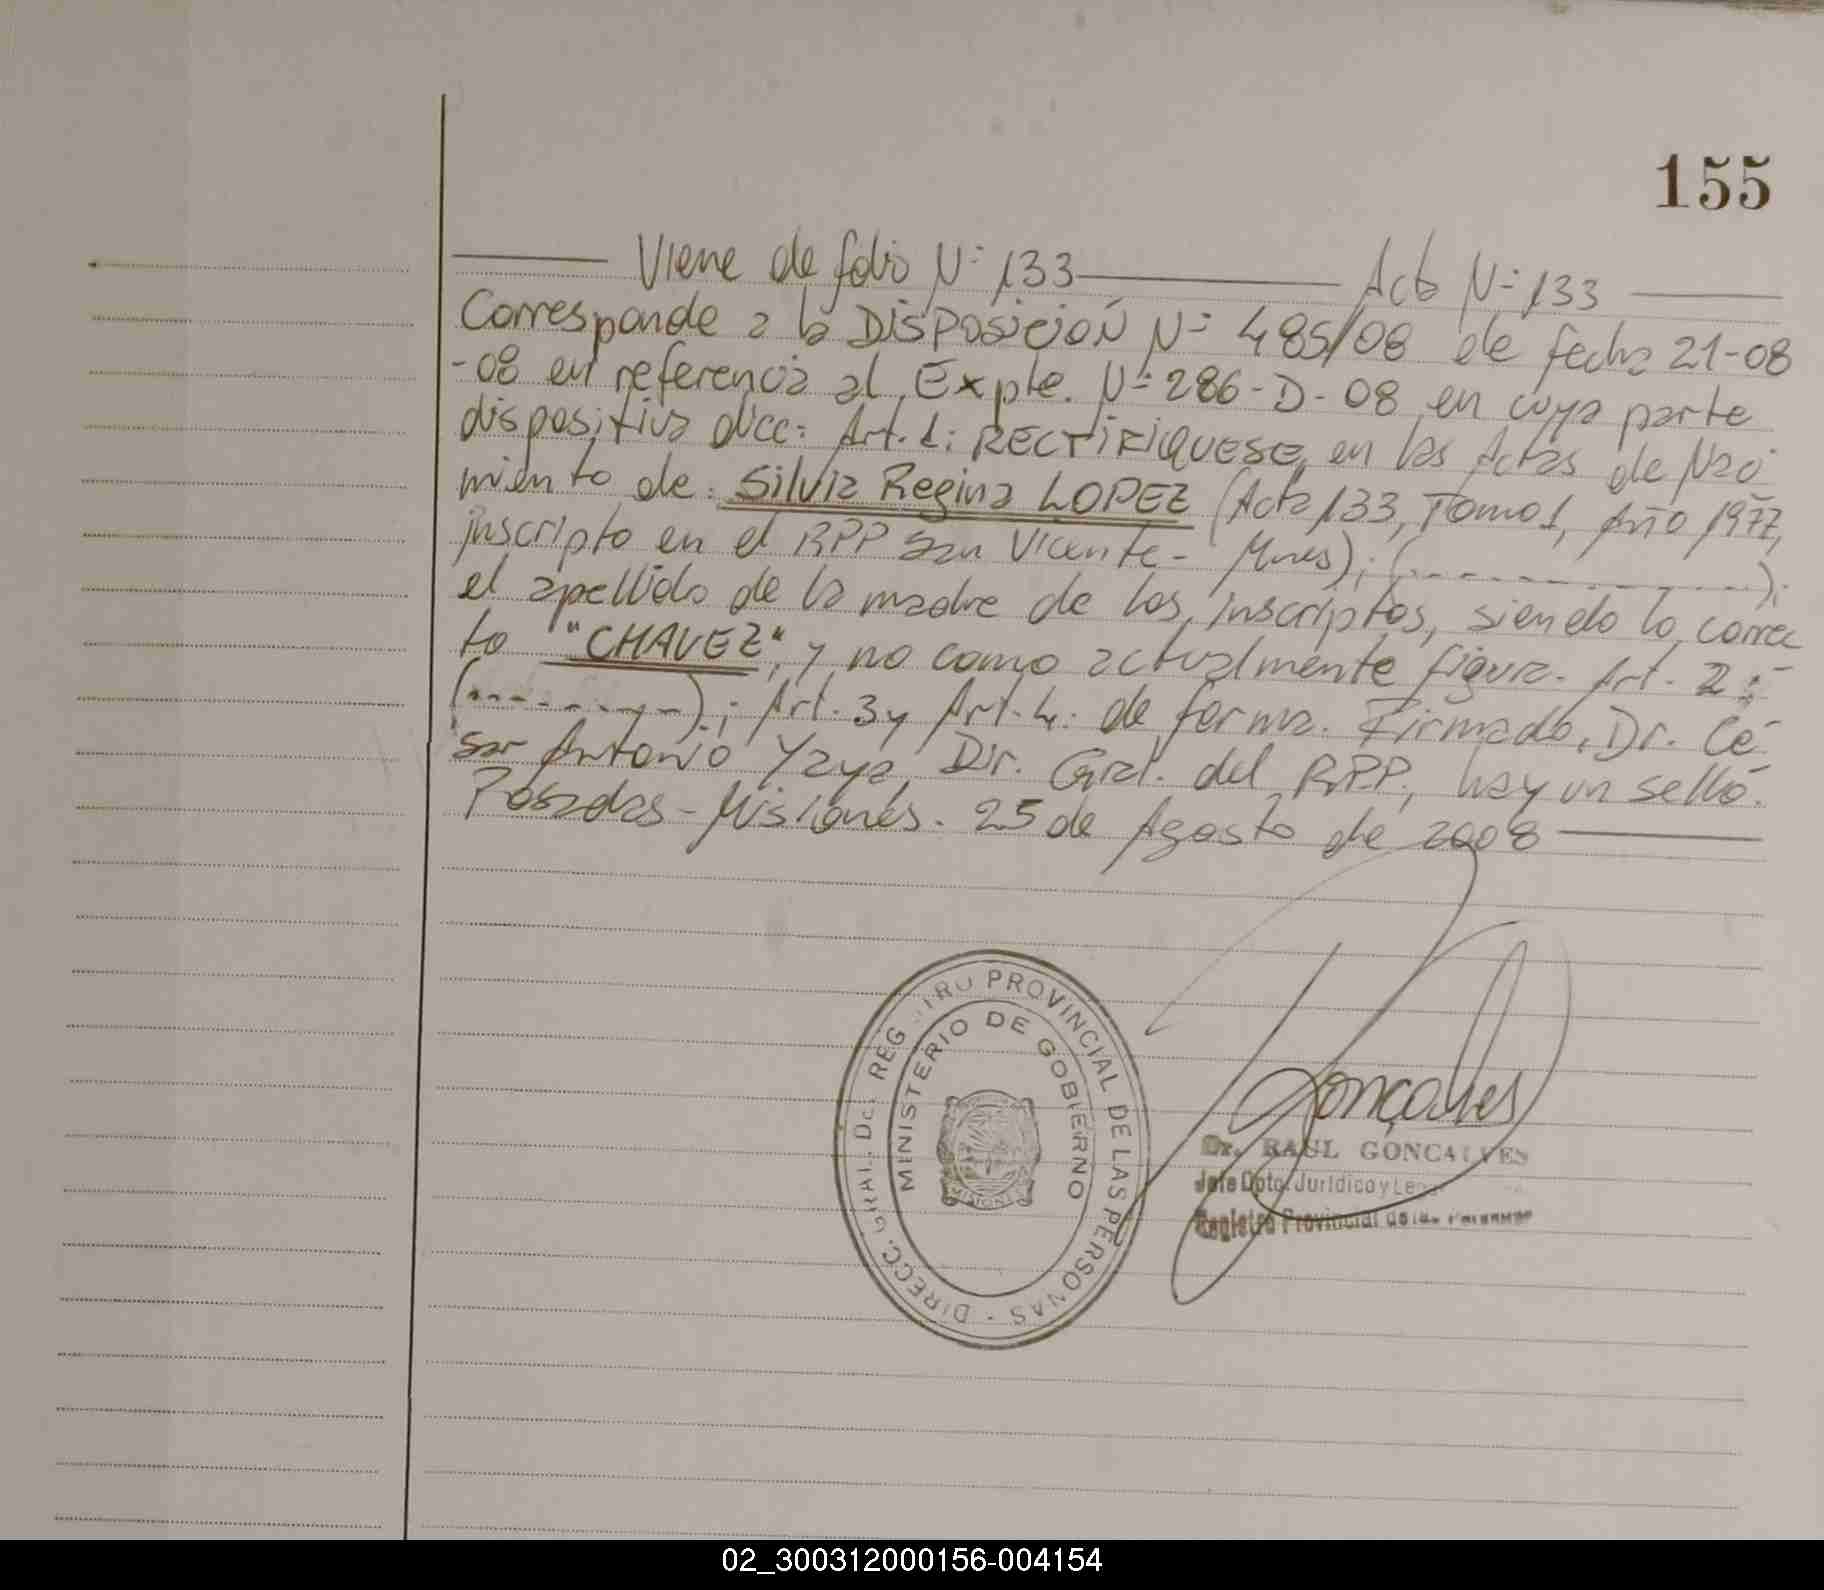 155
Viene de folio N° 133 Acta N° 133
Corresponde a la DISPOSICIÓN N° 485/08 de fecha 21-08
-08 en referencia al Expte. N° 286-D-08 en cuya parte
dispositiva dice: Art. 1: RECTIFIQUESE, en las Actas de Naci
miento de: Silvia Regina LOPEZ (Acta 133, Tomo 1, Año 1977,
inscripto en el RPP San Vicente - Mnes); (- - - - - - - - - -);
el apellido de la madre de los inscriptos, siendo lo correc
to "CHAVEZ", y no como actualmente figura. Art. 2:
(- - - - - - - -); Art. 3 y Art. 4: de forma. Firmado, Dr. Cé
sar Antonio Yaya, Dir. Gral. del RPP, hay un sello.
Posadas - Misiones. 25 de Agosto de 2008
DIRECC. GRAL. DEL REGISTRO PROVINCIAL DE LAS PERSONAS -
MINISTERIO DE GOBIERNO
MISIONES
Gonçalves
Dr. RAUL GONCALVES
Jefe Dpto. Jurídico y Legal
Registro Provincial de las Personas
02_300312000156-004154